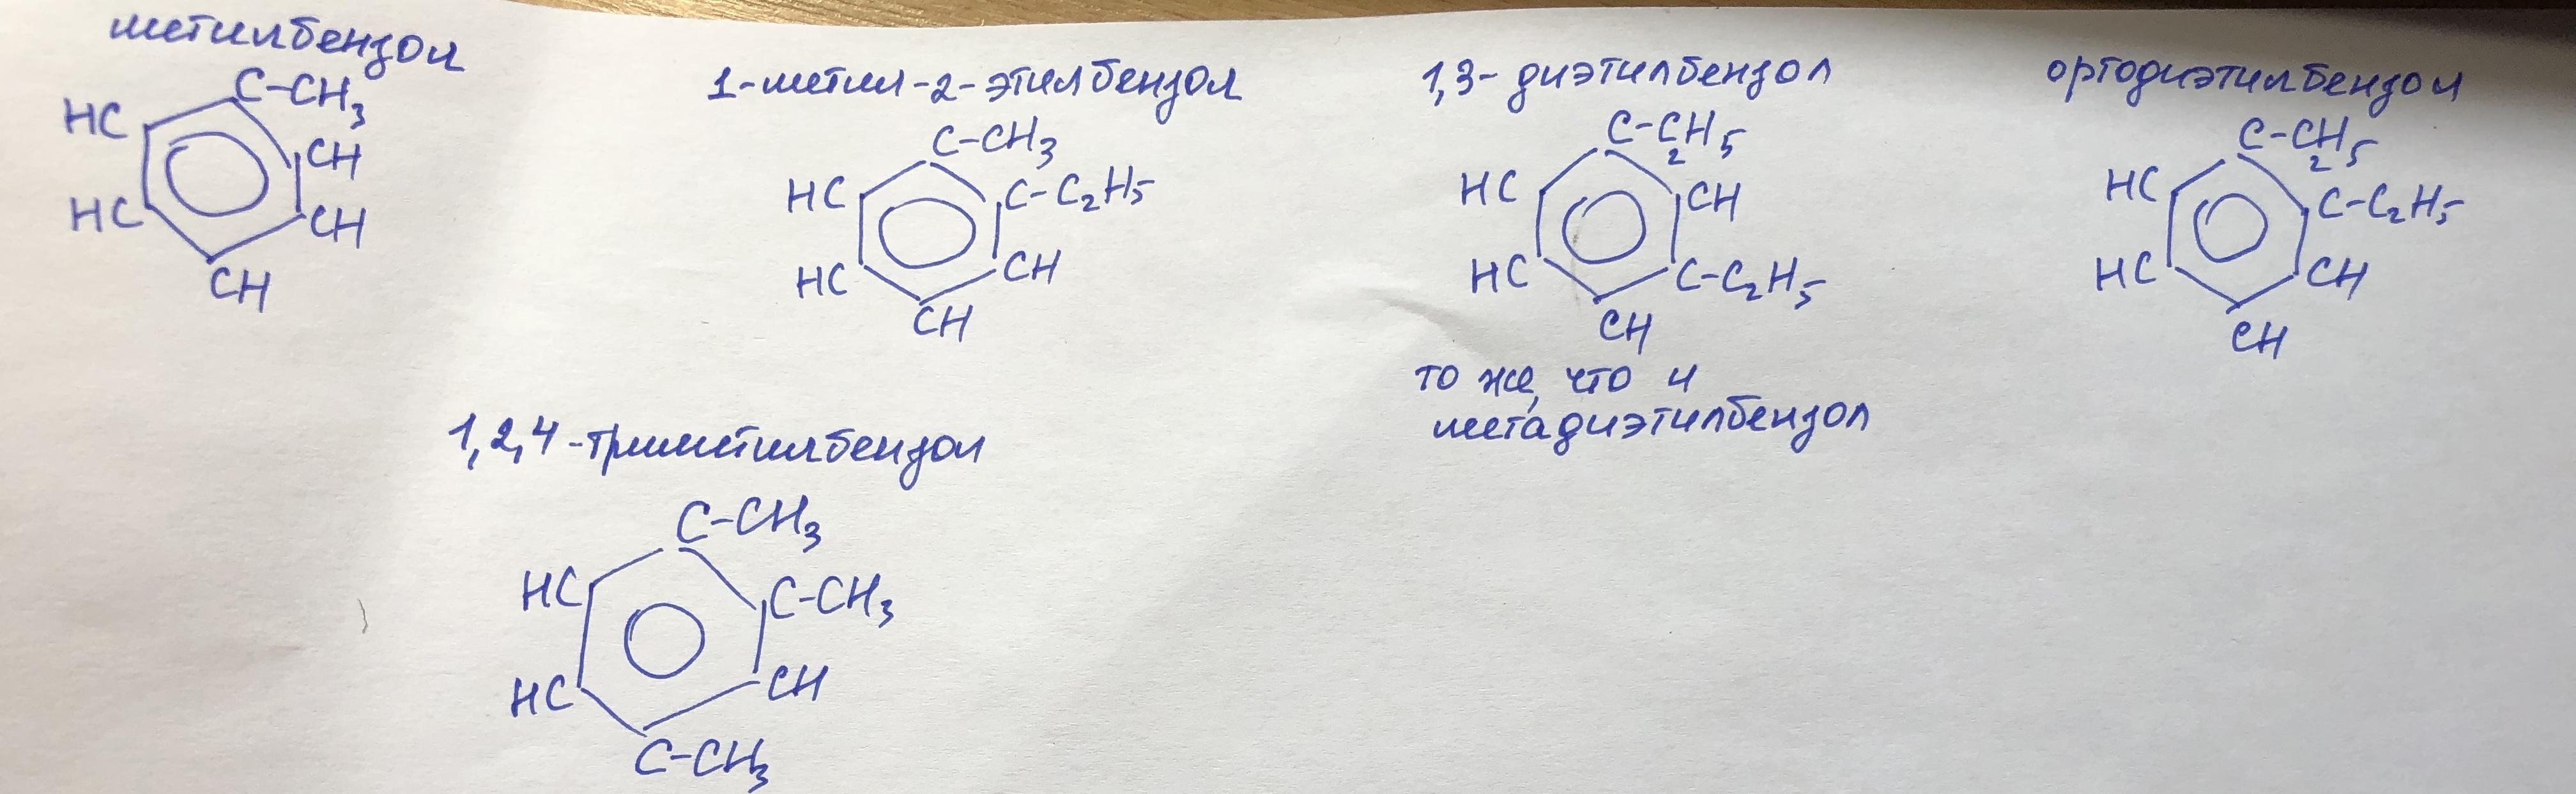 метилбензол
C-CH3
HC
CH
HC
CH
CH
1-метил-2-этилбензол
C-CH3
HC
C-C2H5
HC
CH
CH
1,3-диэтилбензол
C-C2H5
HC
CH
HC
C-C2H5
CH
то же, что и
метадиэтилбензол
ортодиэтилбензол
C-C2H5
HC
C-C2H5
HC
CH
CH
1,2,4-триметилбензол
C-CH3
HC
C-CH3
HC
CH
C-CH3